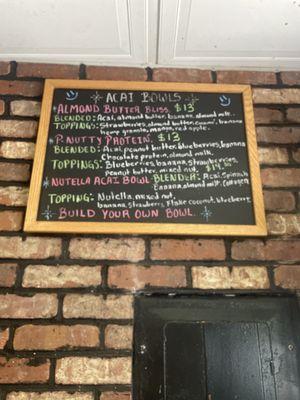 ACAI BOWLS
ALMOND BUTTER BLISS. $13
BLENDED: Acai, almond butter, banana, almond milk.
TOPPINGS: Strawberries, almond butter, banana,
hemp granola, mango, red apple.
P. NUTTY PROTEIN. $13
BLENDED: Acai, Peanut butter, blueberries, banana
Chocolate protein, almond milk.
TOPPINGS: Blueberries, banana, strawberries,
peanut butter, mixed nut. $14.50
NUTELLA ACAI BOWL BLENDED: Acai, Spinach
banana, almond milk, Collagen
TOPPING: Nutella, mixed nut,
banana, strawberry, Flake coconut, blueberry
BUILD YOUR OWN BOWL.